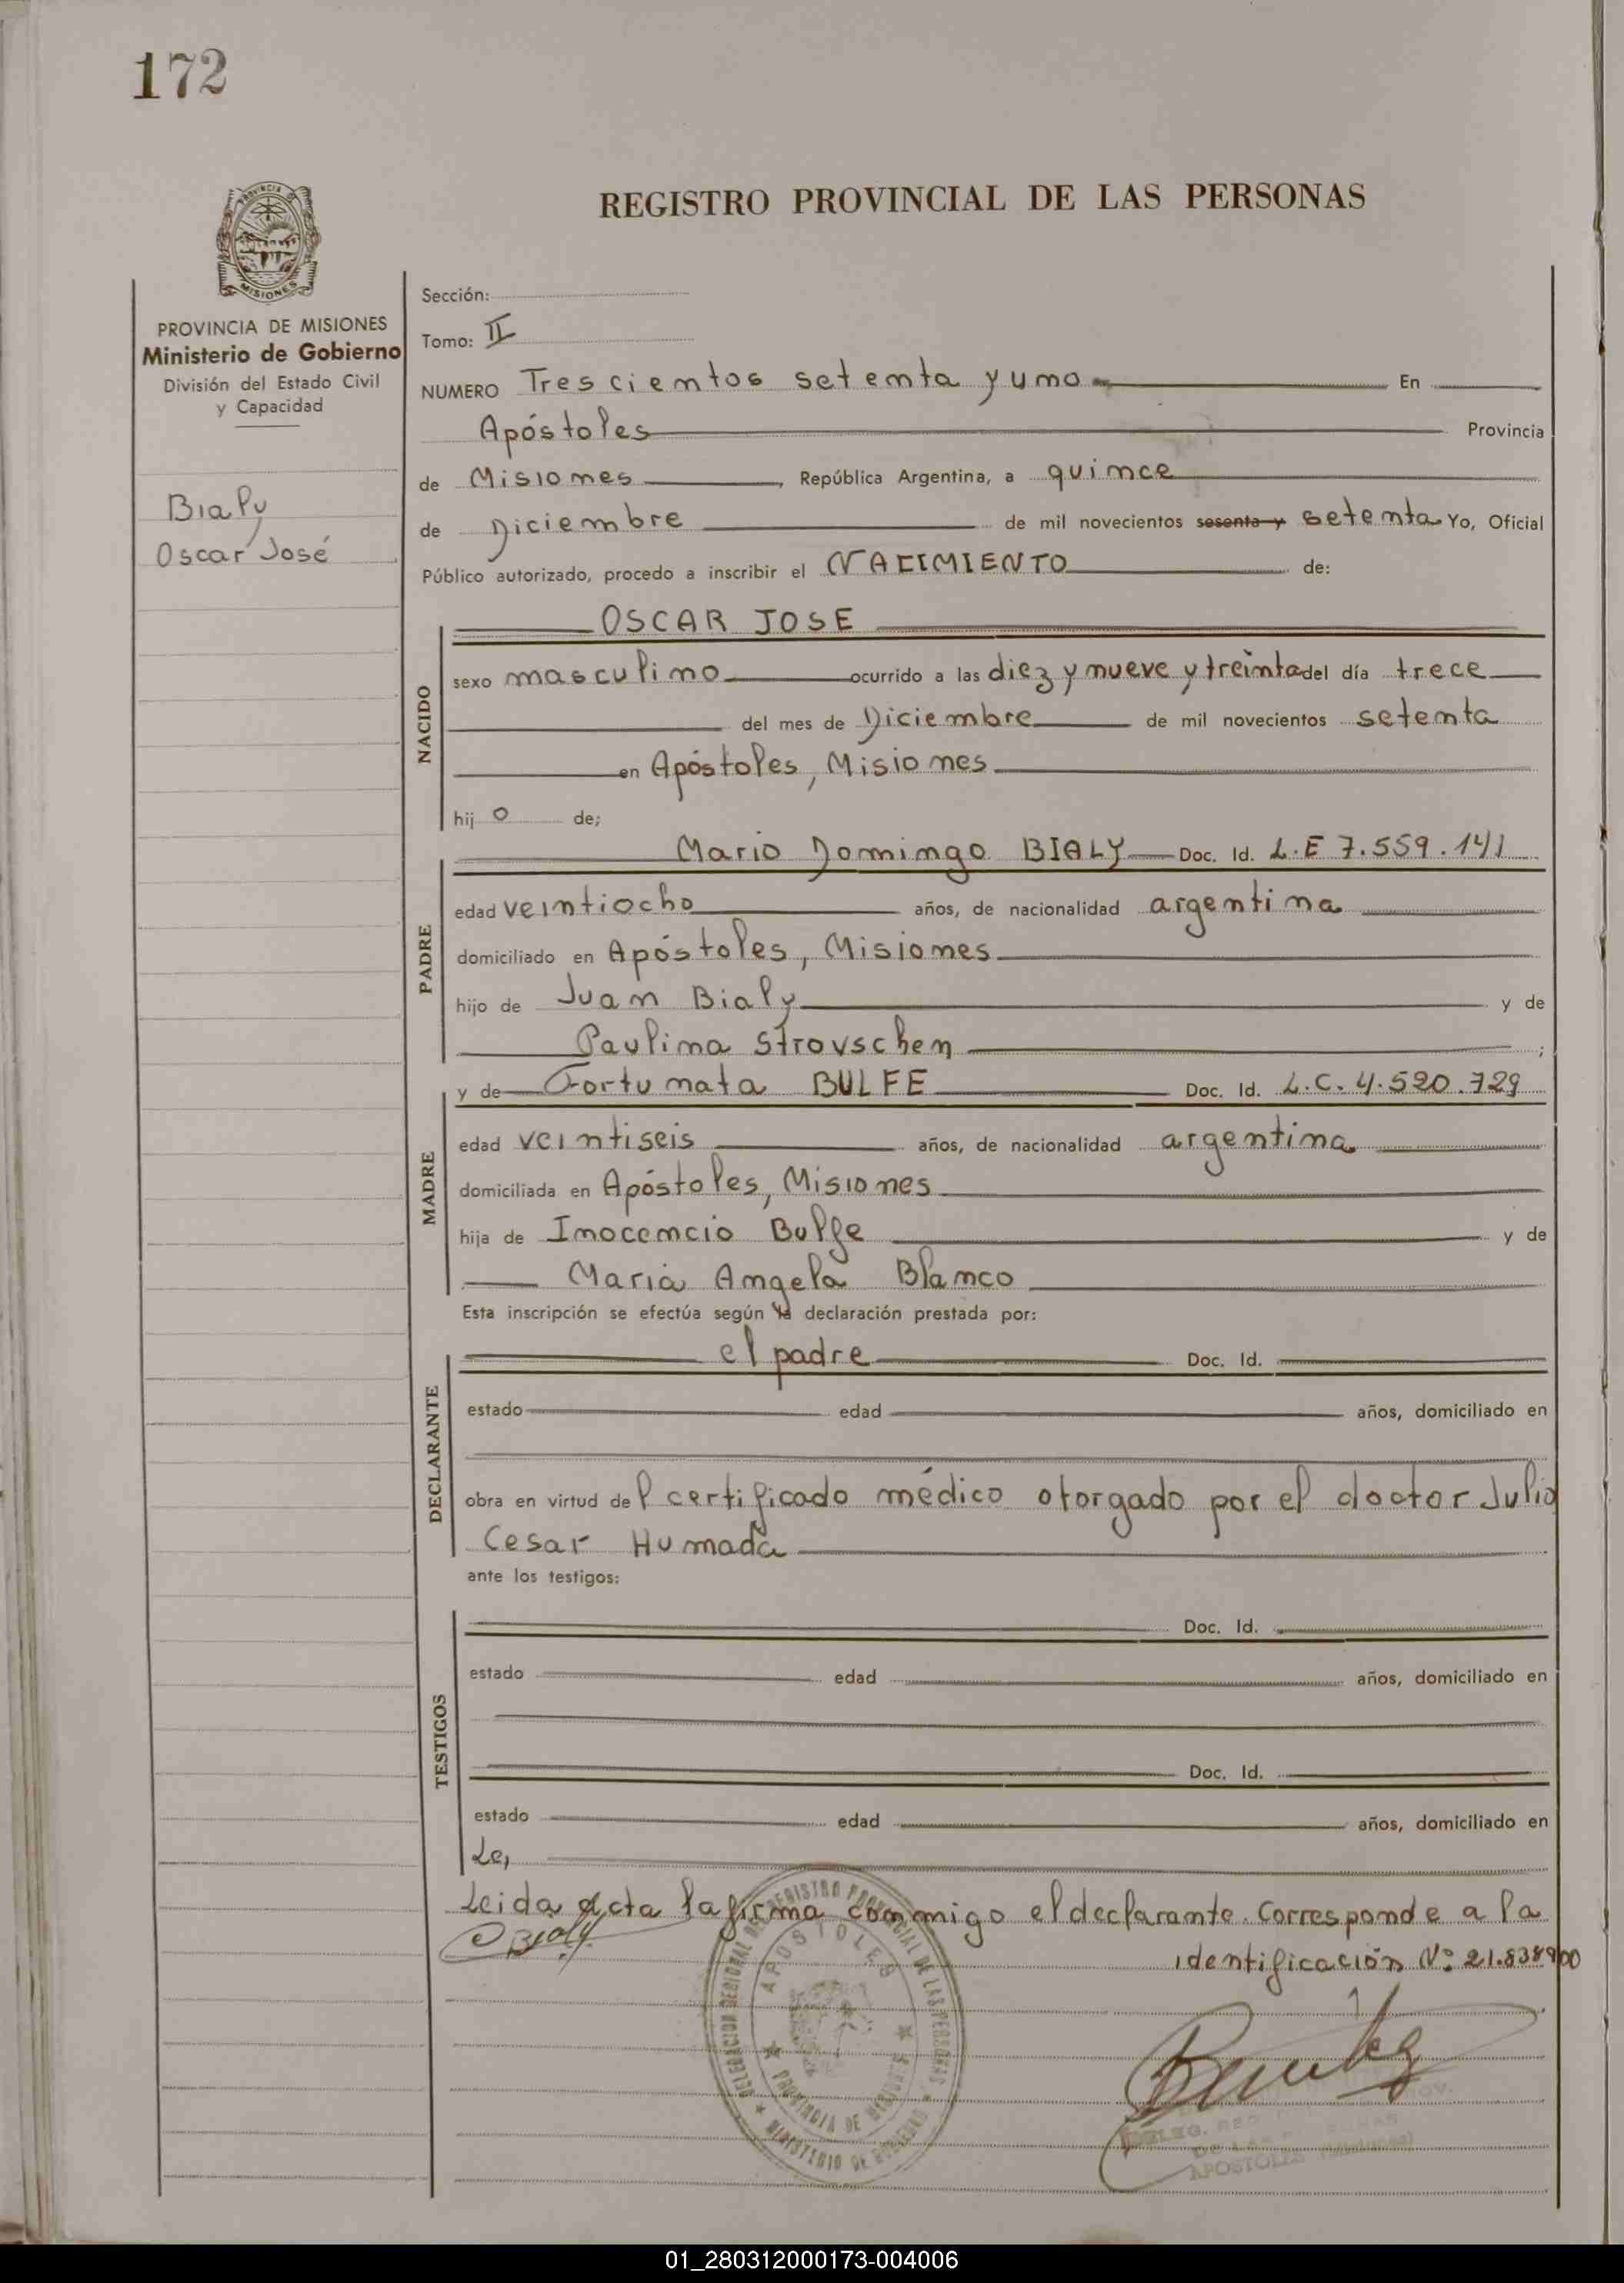 172
REGISTRO PROVINCIAL DE LAS PERSONAS
PROVINCIA
MISIONES
PROVINCIA DE MISIONES
Ministerio de Gobierno
División del Estado Civil
y Capacidad
Bialy
Oscar José
Sección:
Tomo: II
NUMERO Trescientos setenta y uno En
Apóstoles Provincia
de Misiones, República Argentina, a quince
de Diciembre de mil novecientos sesenta y setenta Yo, Oficial
Público autorizado, procedo a inscribir el NACIMIENTO de:
NACIDO
OSCAR JOSE
sexo masculino ocurrido a las diez y nueve y treinta del día trece
del mes de Diciembre de mil novecientos setenta
en Apóstoles, Misiones
hijo de;
PADRE
Mario Domingo BIALY Doc. Id. L.E 7.559.141
edad veintiocho años, de nacionalidad argentina
domiciliado en Apóstoles, Misiones
hijo de Juan Bialy y de
Paulina Strouschen;
MADRE
y de Fortunata BULFE Doc. Id. L.C. 4.520.729
edad veintiseis años, de nacionalidad argentina
domiciliada en Apóstoles, Misiones
hija de Inocencio Bulfe y de
María Angela Blanco
Esta inscripción se efectúa según la declaración prestada por:
DECLARANTE
el padre Doc. Id.
estado edad años, domiciliado en
obra en virtud del certificado médico otorgado por el doctor Julio
Cesar Humada
ante los testigos:
TESTIGOS
Doc. Id.
estado edad años, domiciliado en
Doc. Id.
estado edad años, domiciliado en
Le,
Leida acta la firma conmigo el declarante. Corresponde a la
Bialy
identificación Nº 21.838900
DELEGACION REGIONAL DEL REGISTRO PROVINCIAL DE LAS PERSONAS
APOSTOLES
PROVINCIA DE MISIONES
MINISTERIO DE GOBIERNO
DELEG. REG.
DE LAS PERSONAS
APOSTOLES (Misiones)
01_280312000173-004006